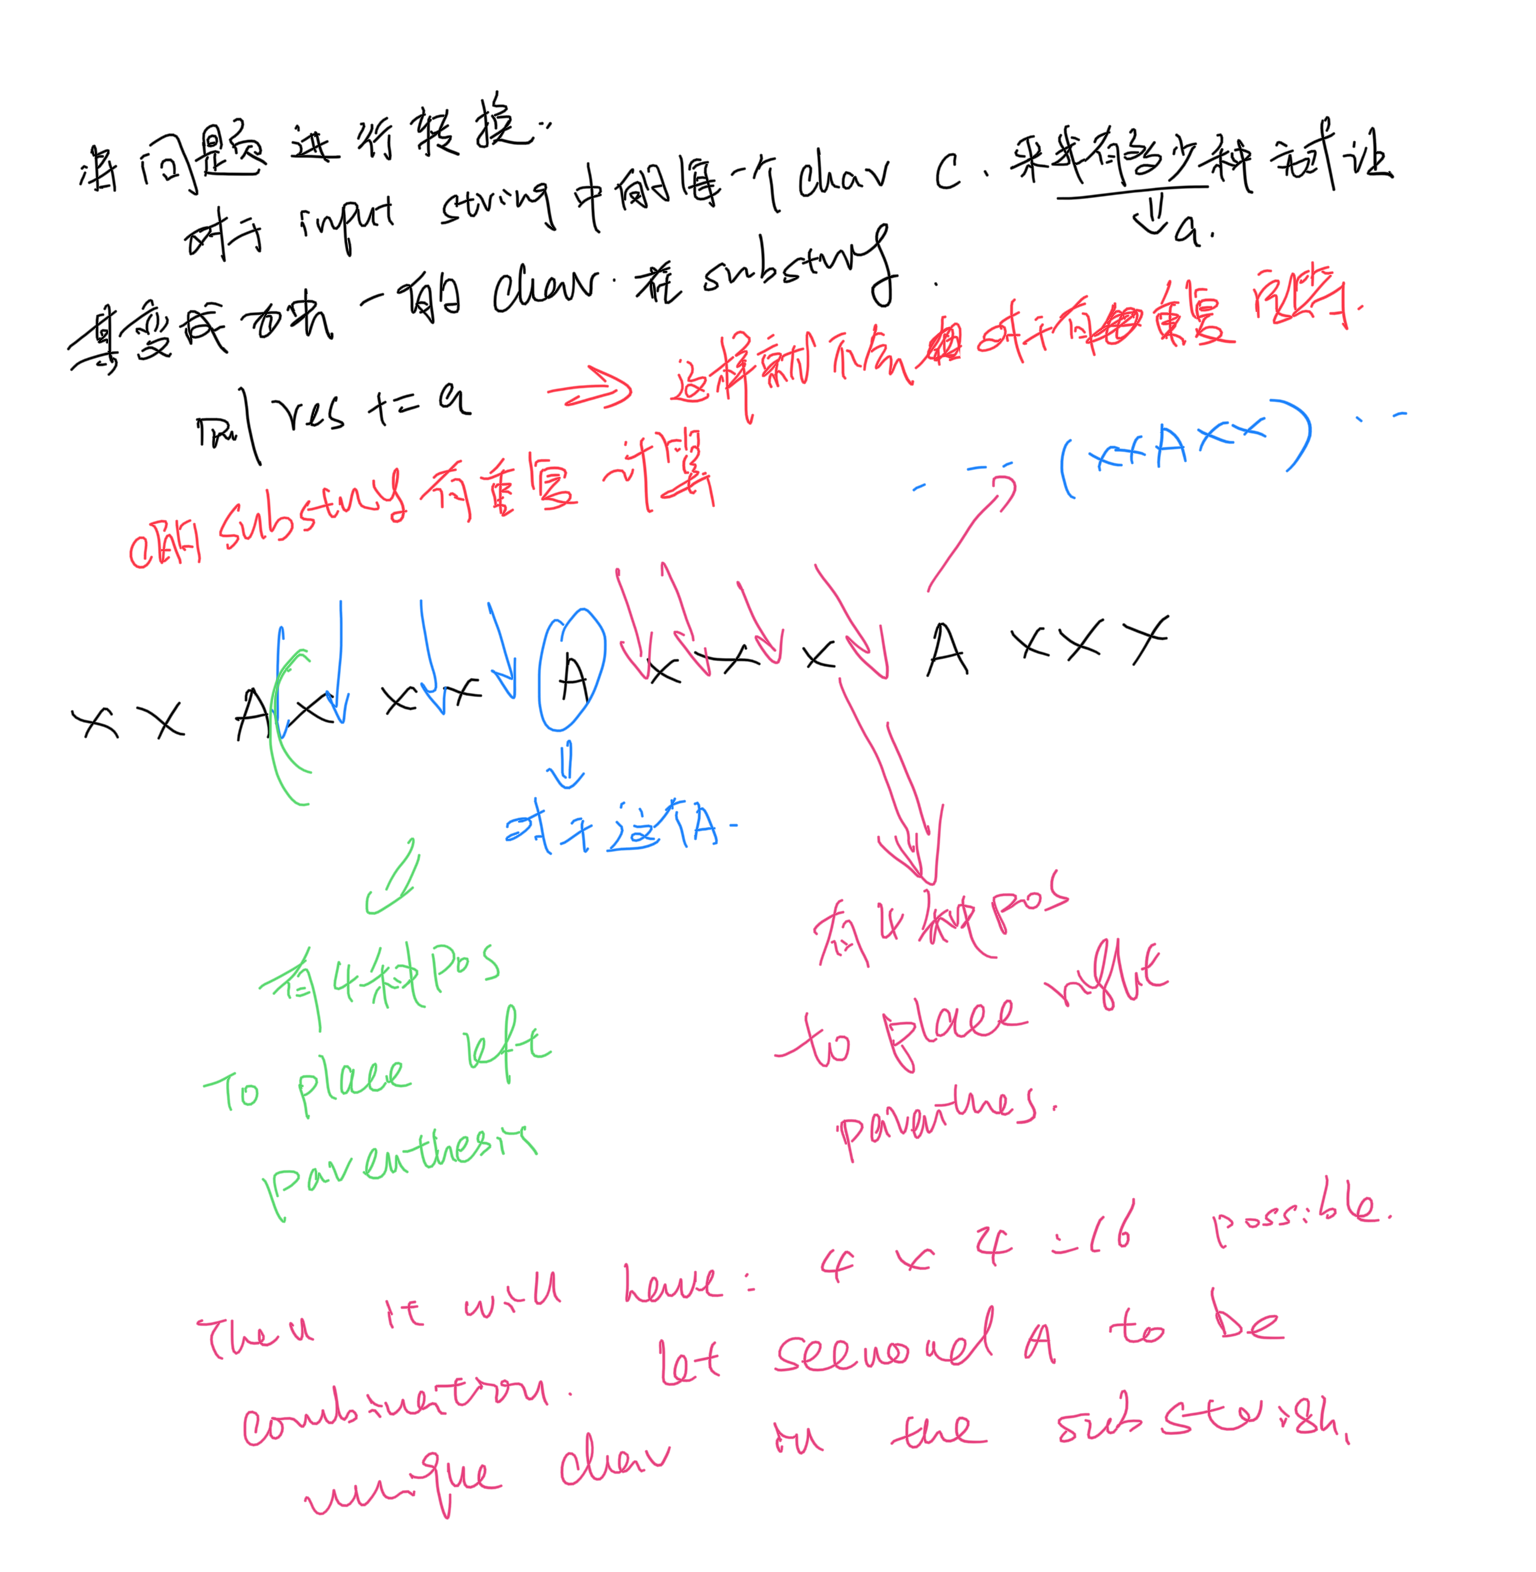 将问题进行转换..
对于 input string 中的每一个 char C. 来求有多少种方式让
a.
其变成为唯一的 char. 在 substring.
则 res += a => 这样就不会 对于有重复
c的 substring 有重复计算
. -- (xxAxx) . --
xx Ax xx A xxx A xxx
对于这个A.
有4种pos
To place left
parenthesis
有4种pos
to place right
parenthes.
Then it will have: 4 x 4 = 16 possible.
combination. let secnond A to be
unique char in the substrish.